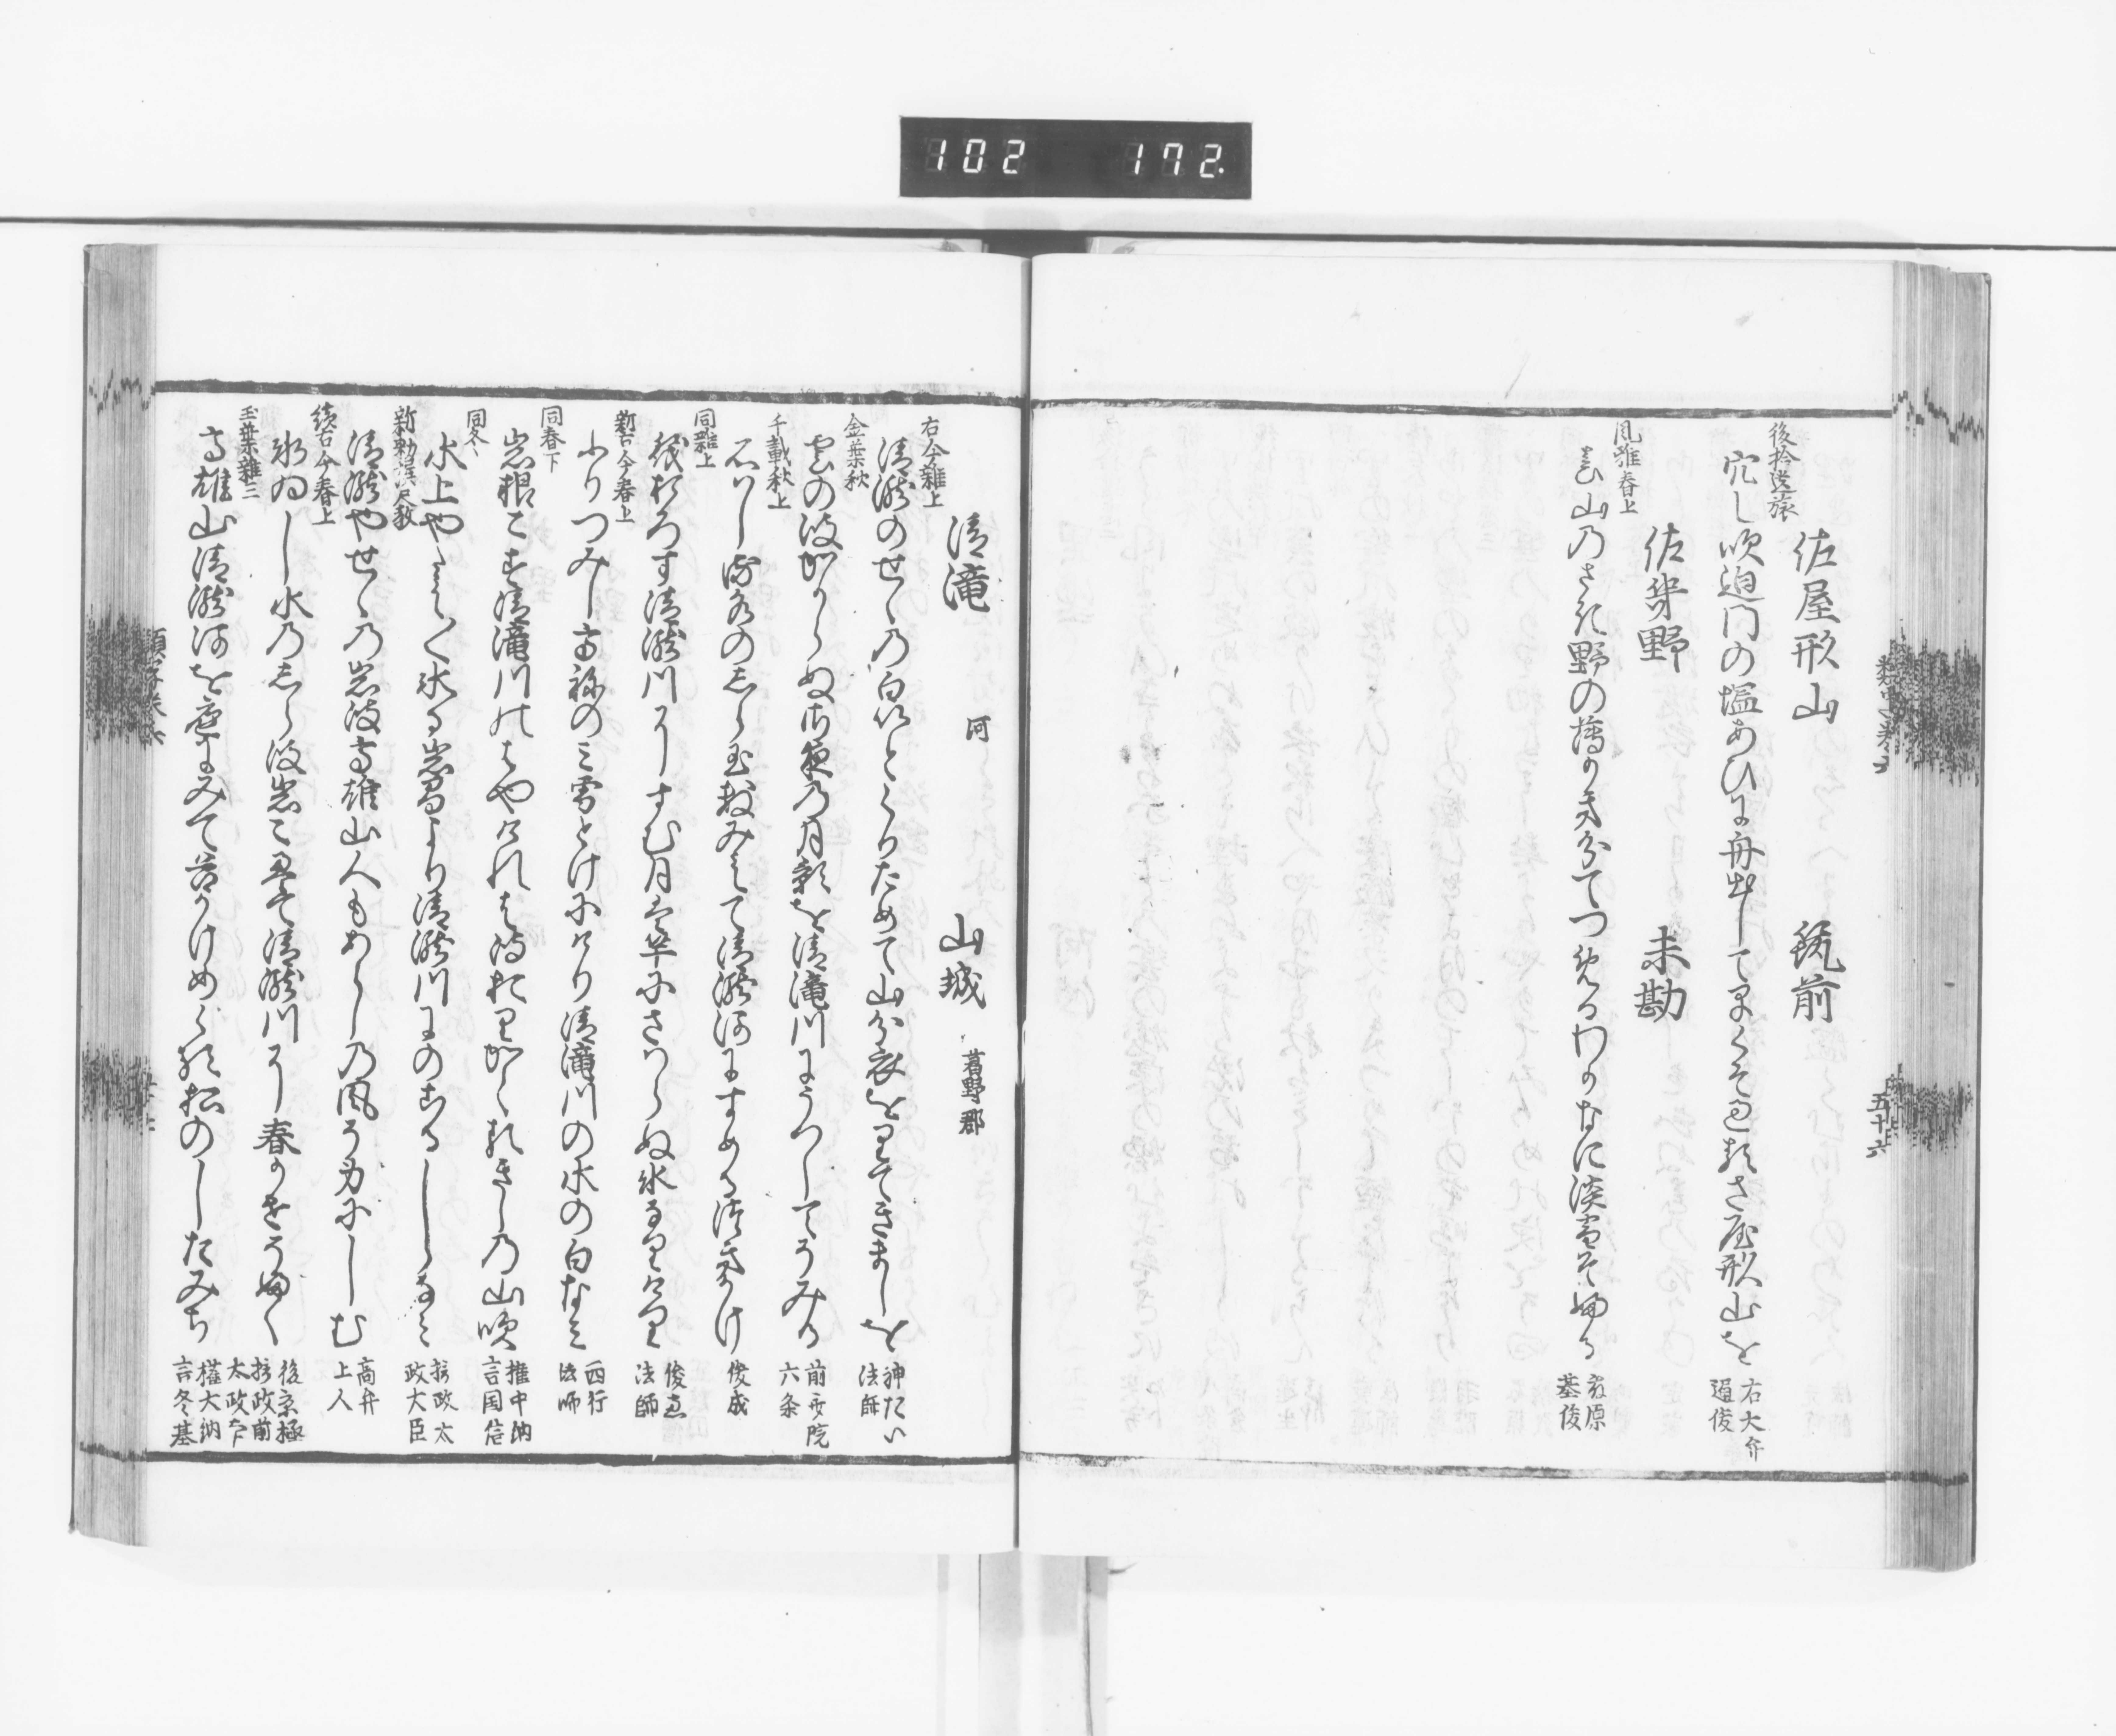 102 172.
佐屋形山 筑前
後拾遺旅
穴し吹迫門の塩あひに舟出してはやくそ過るさ屋形山を 右大弁通俊
佐芽野 未勘
風雅春上
春山乃さき野の薄かき分てつめるわかなに淡雪そふる 藤原基俊
五十六
清滝 河 山城 葛野郡
古今雑上
清瀧のせゝ乃白いとくりためて山分衣をりてきましを 神たい法師
金葉秋
雲の波かゝらぬさ夜乃月影を清滝川にうつしてそみる 前斎院六条
千載秋上
石はしる水の志ら玉数みえて清瀧河にすめる月かけ 俊成
同雑上
筏おろす清瀧川にすむ月は棹にさはらぬ氷なりけり 俊恵法師
新古今春上
ふりつみし高祢のミ雪とけにけり清滝川の水の白なミ 西行法師
同春下
岩根こす清滝川のはやけれは波おりかくるきしの山吹 権中納言国信
同冬
水上やたえ〳〵氷る岩間より清瀧川にのこるしらなミ 摂政太政大臣
新勅撰尺教
清瀧やせゝ乃岩波高雄山人もあらしの風そ身にしむ 高弁上人
続古今春上
氷ゐし水乃志ら波岩こえて清瀧川に春かせそふく 後京極摂政前太政大臣
玉葉雑三
高雄山清瀧河を庭にみて苔かけめくる松のしたみち 権大納言冬基